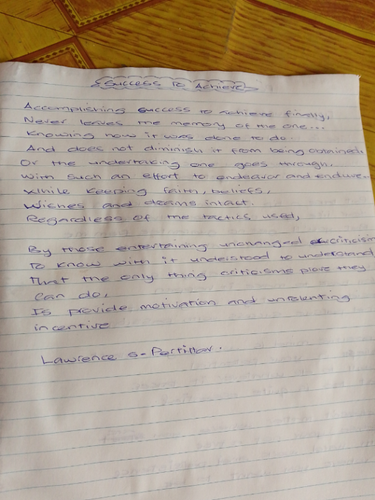 Success to Achieve
Accomplishing success to achieve finally,
Never leaves the memory of the one...
Knowing how it was done to do.
And does not diminish it from being obtained.
Or the undertaking one goes through,
With such an effort to endeavor and endure
While keeping faith, beliefs,
Wishes and dreams intact.
Regardless of the tactics used,
By those entertaining unchanged criticism
To know with it understood to understand
That the only thing criticisms prove they
can do,
Is provide motivation and unrelenting
incentive
Lawrence S. Pertillar.